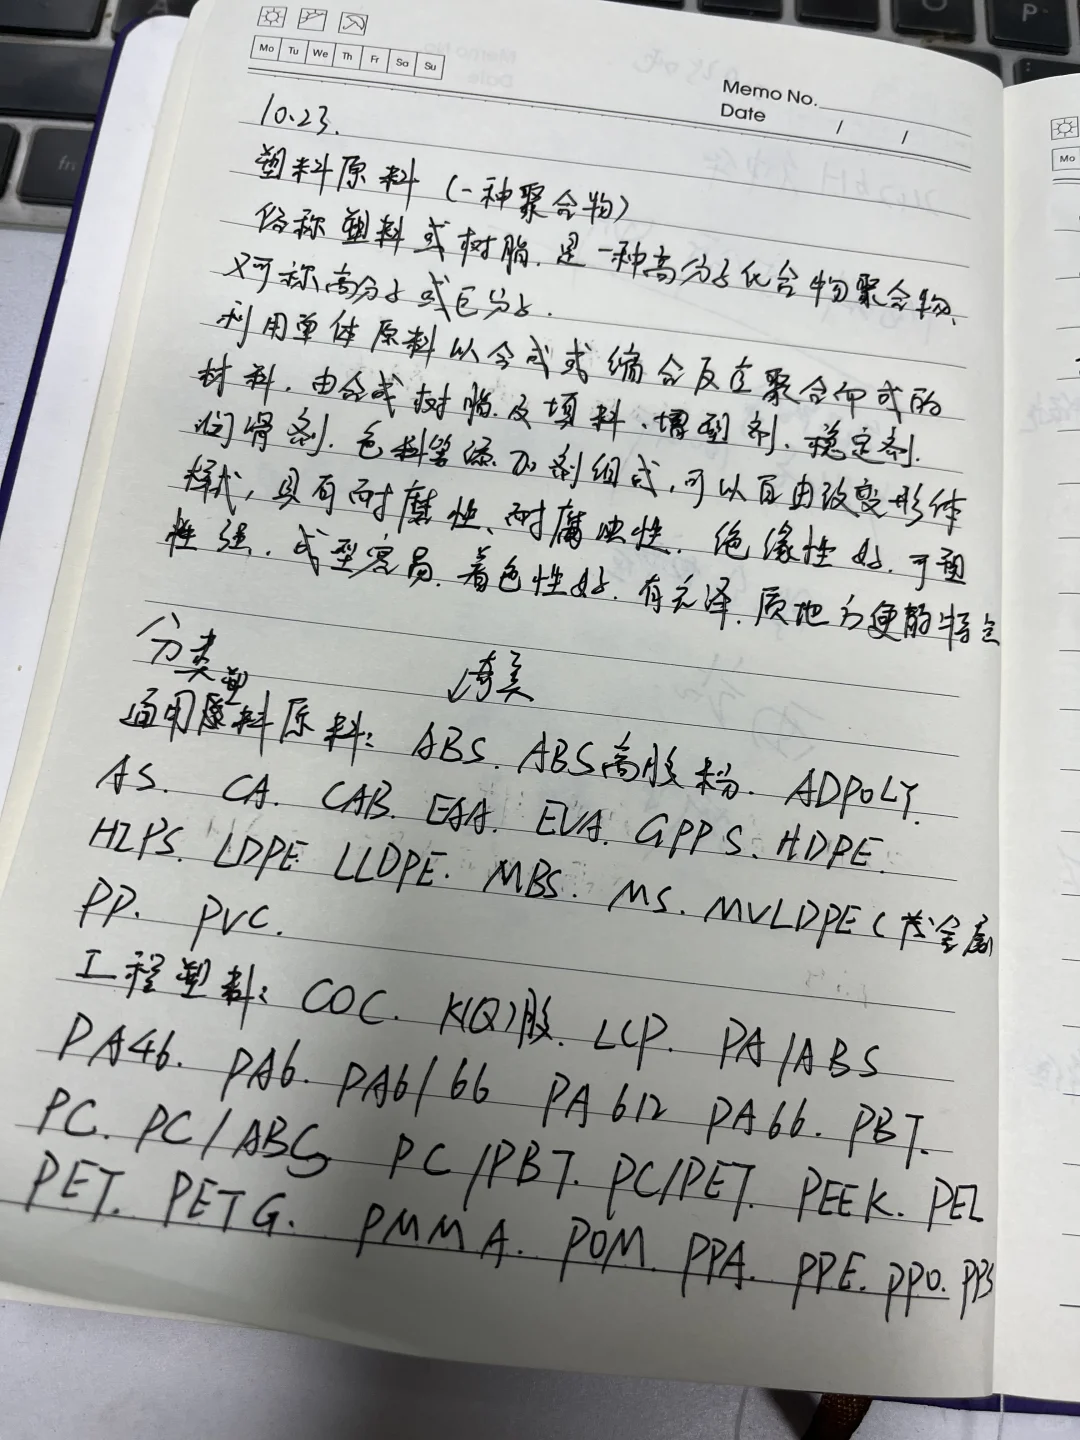 Mo Tu We Th Fr Sa Su
Memo No.
Date / /
10.23.
塑料原料（一种聚合物）
俗称塑料或树脂.是一种高分子化合物聚合物、
又可称高分子或巨分子.
利用单体原料以合成或缩合反应聚合而成的
材料.由合成树脂.及填料、增塑剂.稳定剂.
润滑剂.色料等添加剂组成,可以自由改变形体
样式,具有耐磨性、耐腐蚀性.绝缘性好.可塑
性强.成型容易.着色性好.有光泽.质地方便的特点
分类
↙奇美
通用塑料原料: ABS. ABS高胶粉. ADPOLY.
AS. CA. CAB. EAA. EVA. GPPS. HDPE.
HIPS. LDPE LLDPE. MBS. MS. MVLDPE(茂金属
PP. PVC.
工程塑料: COC. K(Q)胶. LCP. PA/ABS
PA46. PA6. PA6/66 PA612 PA66. PBT.
PC. PC/ABS PC/PBT. PC/PET. PEEK. PEI
PET. PETG. PMMA. POM. PPA. PPE. PPO. PPS
fn
P
Mo